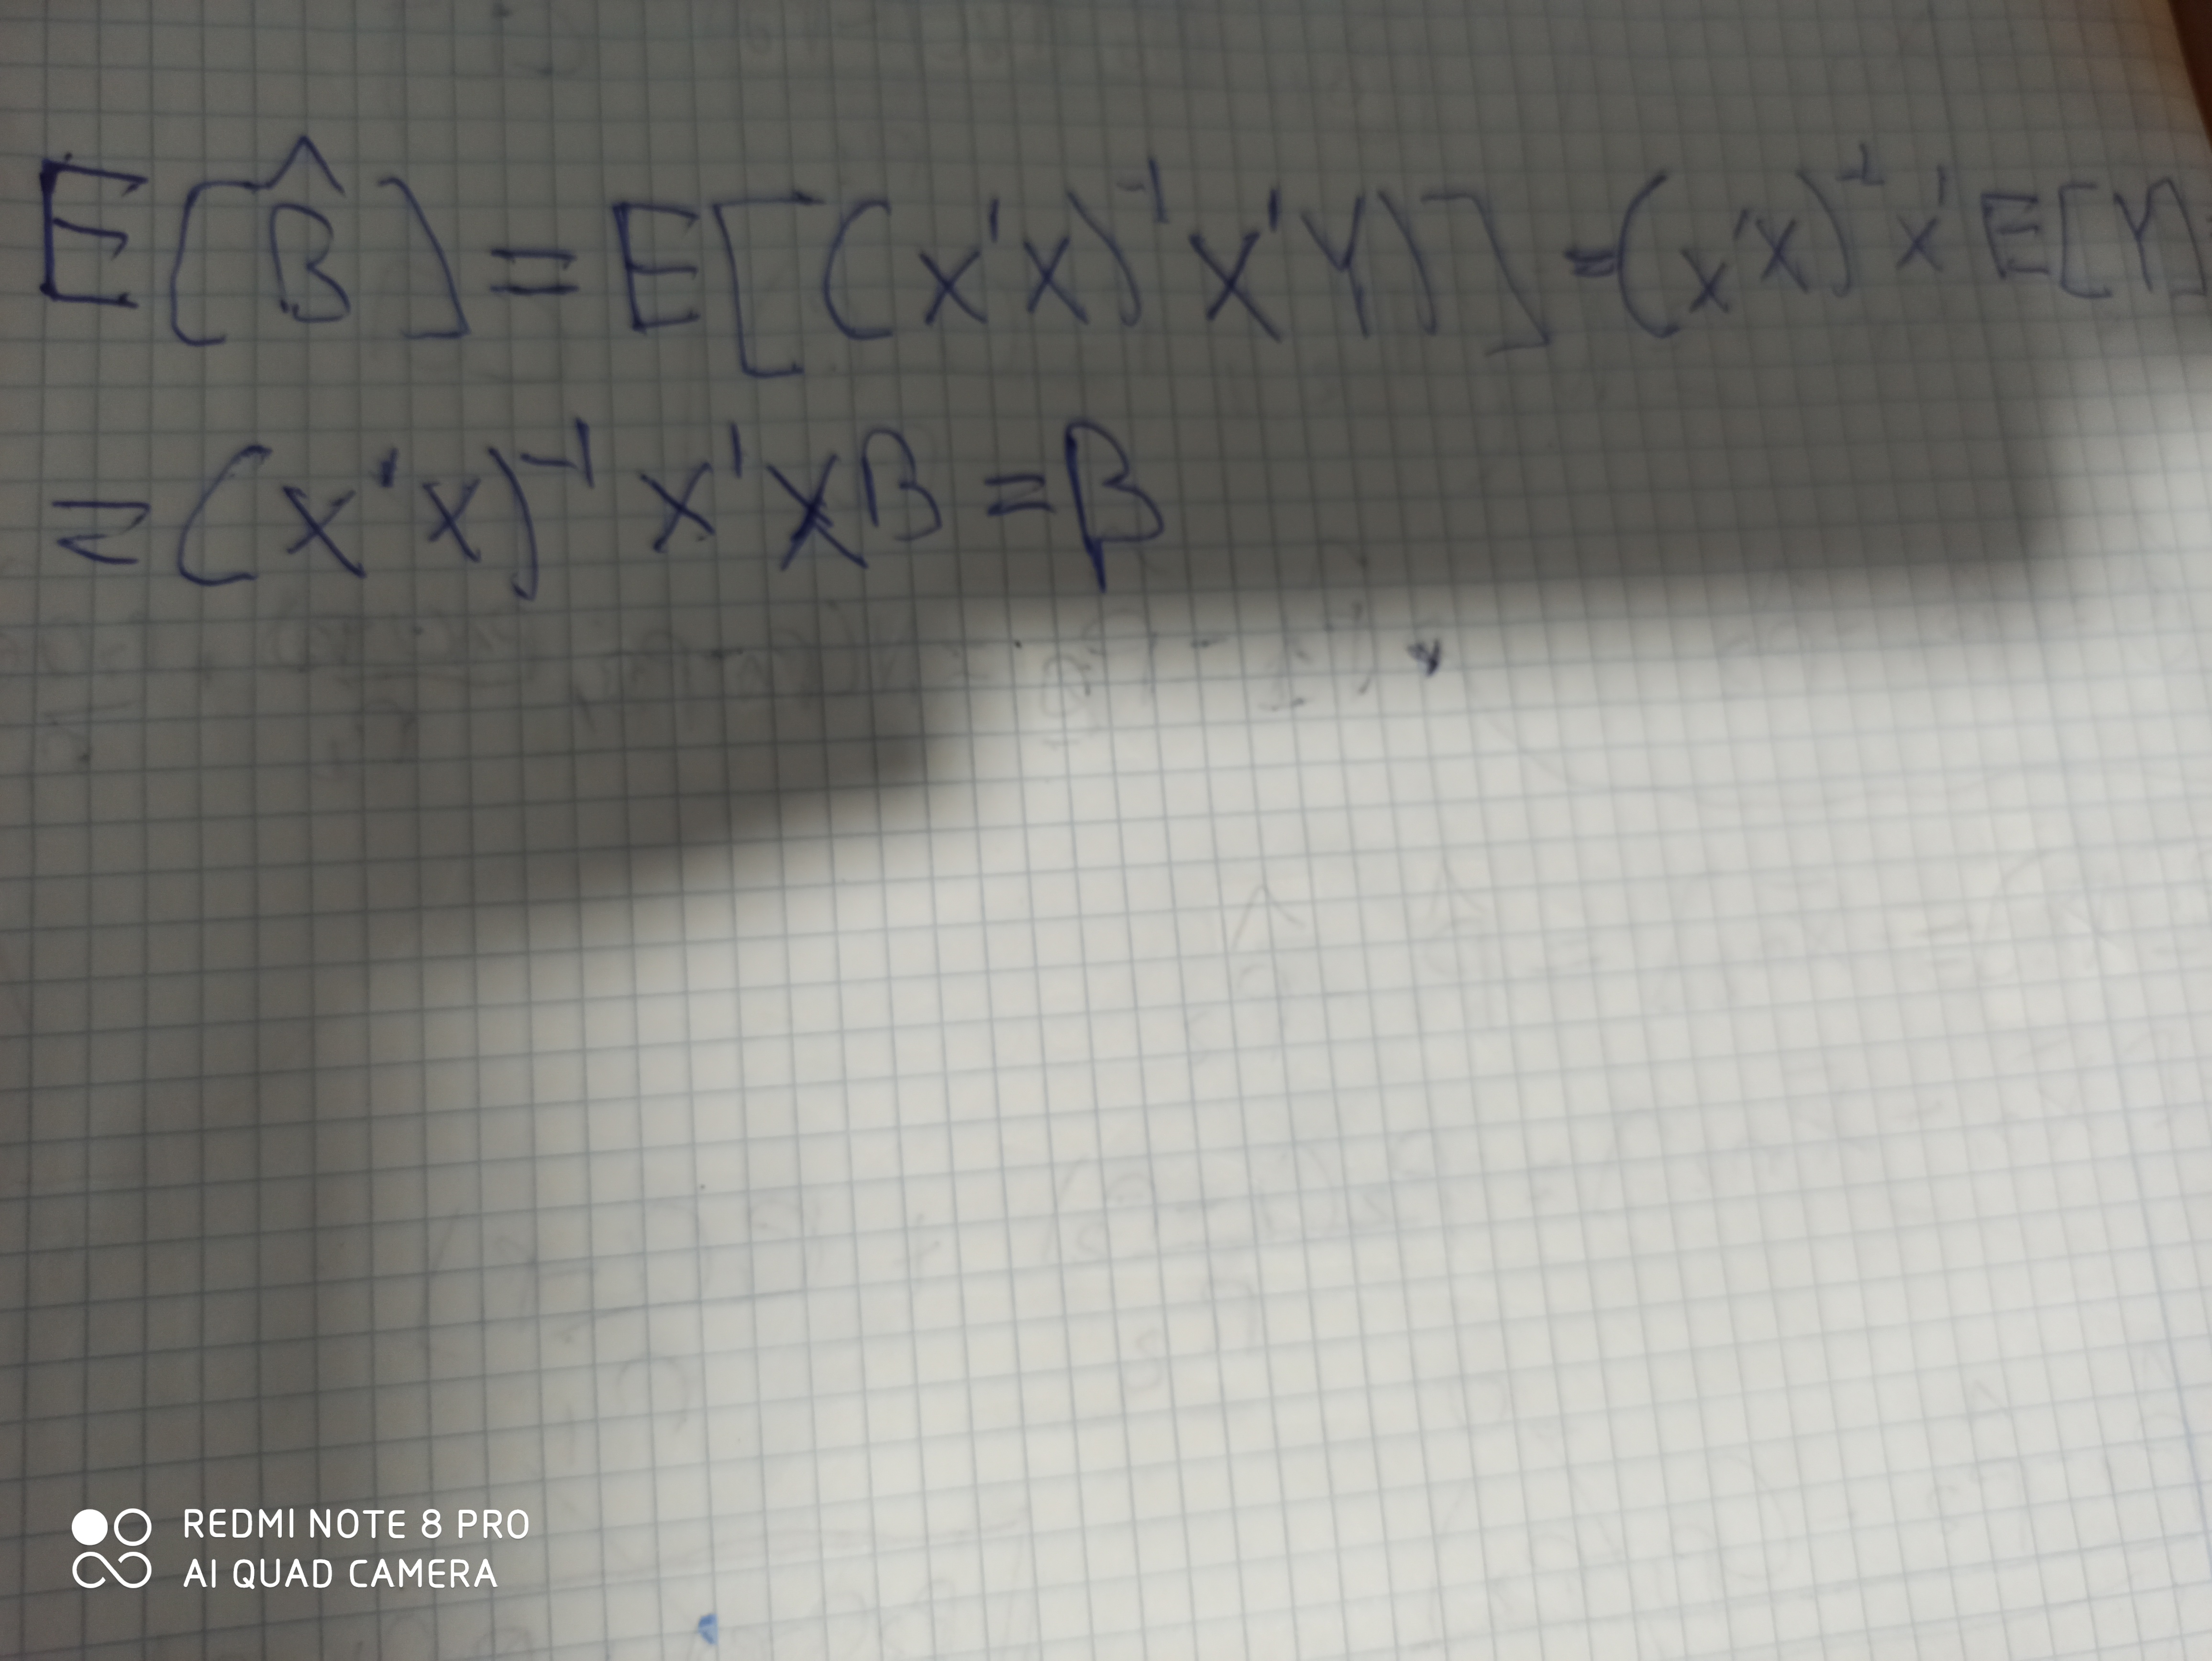 E[β̂] = E[(x'x)⁻¹x'Y)] = (x'x)⁻¹x'E[Y]
= (x'x)⁻¹x'xβ = β
REDMI NOTE 8 PRO
AI QUAD CAMERA